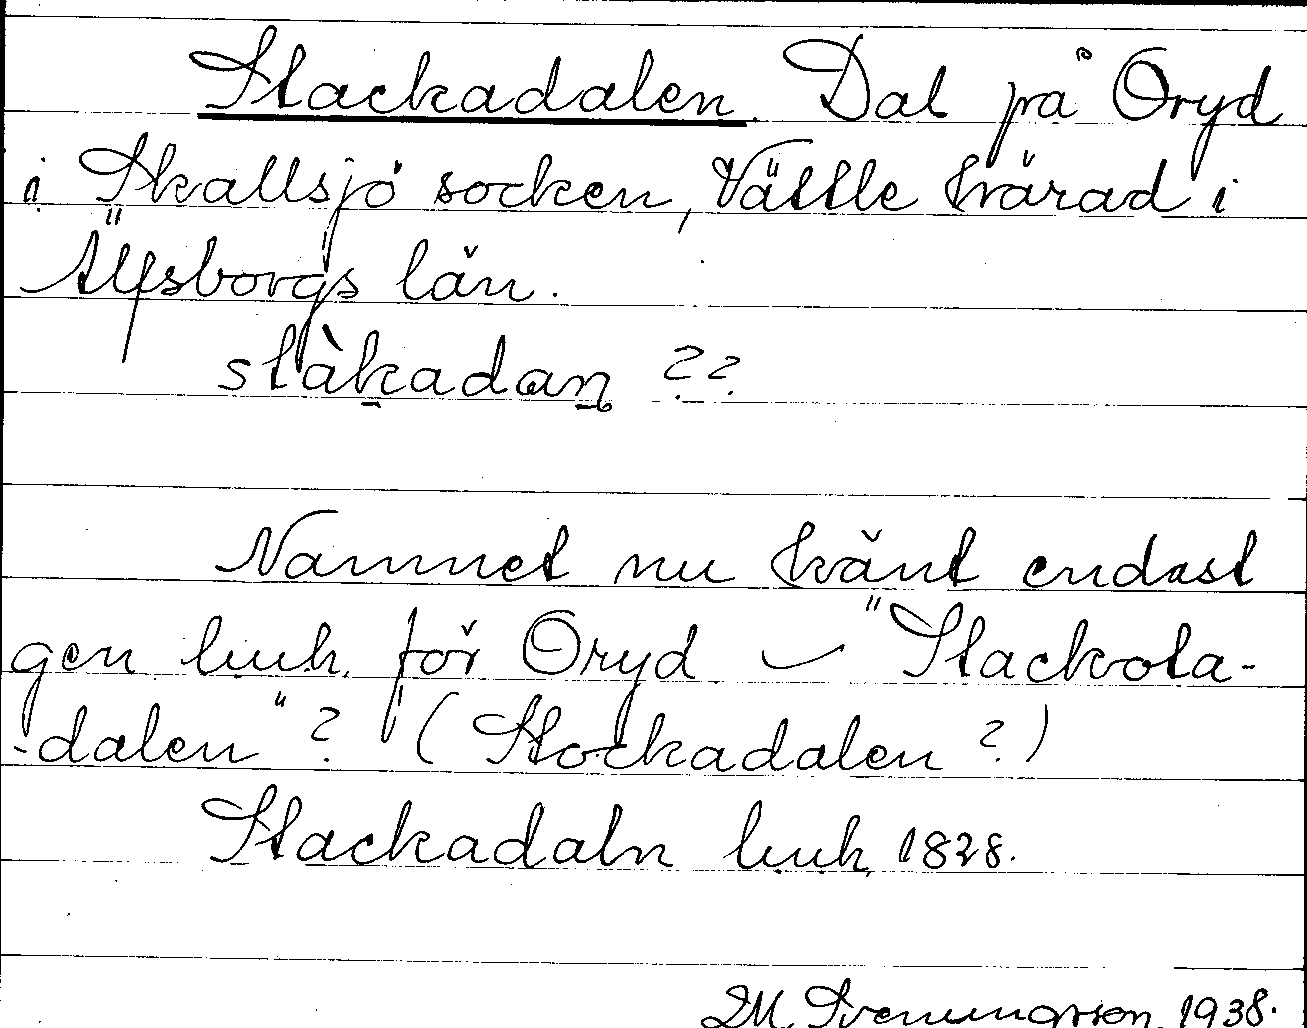 Stackadalen. Dal på Oryd
i Skallsjö socken, Vättle härad i
Älfsborgs län.
stàkadan ??
Namnet nu känt endast
gen luuh. för Oryd – "Stackota-
-dalen"? (Stockadalen ?)
Stackadaln luuh. 1828.
Svenungsson 1938.